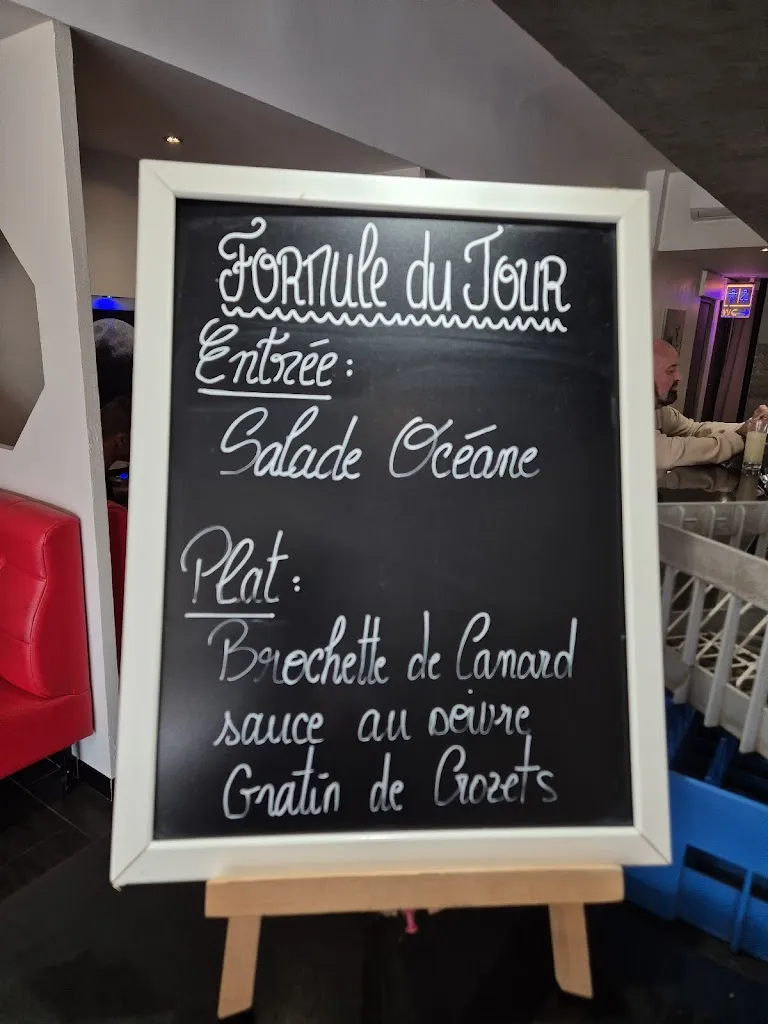 Formule du Jour
Entrée :
Salade Océane
Plat :
Brochette de Canard
sauce au poivre
Gratin de Crozets
WC